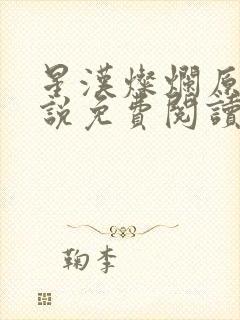 星漢燦爛原
說免費閱讀
鞠李